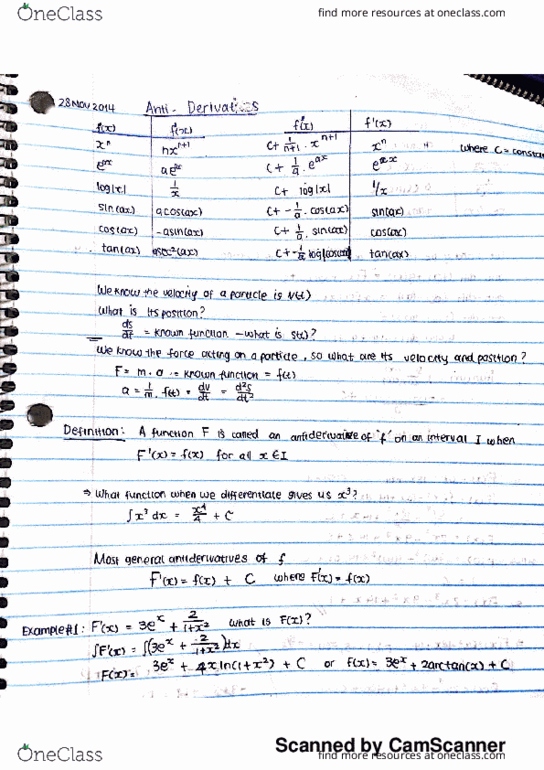 OneClass
find more resources at oneclass.com
28 NOV 2014 Anti-Derivatives
f(x) f'(x) f(x) f'(x)
xⁿ nxⁿ⁺¹ C + 1/n+1 · xⁿ⁺¹ xⁿ where C = constan
C + 1/a · eᵃˣ
log|x| 1/x C + log|x| 1/x
sin(ax) acos(ax) C + -1/a · cos(ax) sin(ax)
cos(ax) -asin(ax) C + 1/a · sin(ax) cos(ax)
tan(ax) tan(ax)
We know the velocity of a particle is v(t)
What is its position?
ds/dt = known function - what is s(t)?
We know the force acting on a particle, so what are its velocity and position?
F = m · a = known function = f(t)
a = 1/m · f(t) = dv/dt = d²s/dt²
Definition: A function F is called an antiderivative of "f" on an interval I when
F'(x) = f(x) for all x ∈ I
⇒ What function when we differentiate gives us x³?
∫x³ dx = x⁴/4 + C
Most general antiderivatives of f
F'(x) = f(x) + C where F'(x) = f(x)
Example #1: F'(x) = 3eˣ + 2/1+x² what is F(x)?
∫F'(x) = ∫(3eˣ + 2/1+x²)dx
F(x) = 3eˣ + 4x ln(1+x²) + C or f(x) = 3eˣ + 2arctan(x) + C
Scanned by CamScanner
OneClass
find more resources at oneclass.com